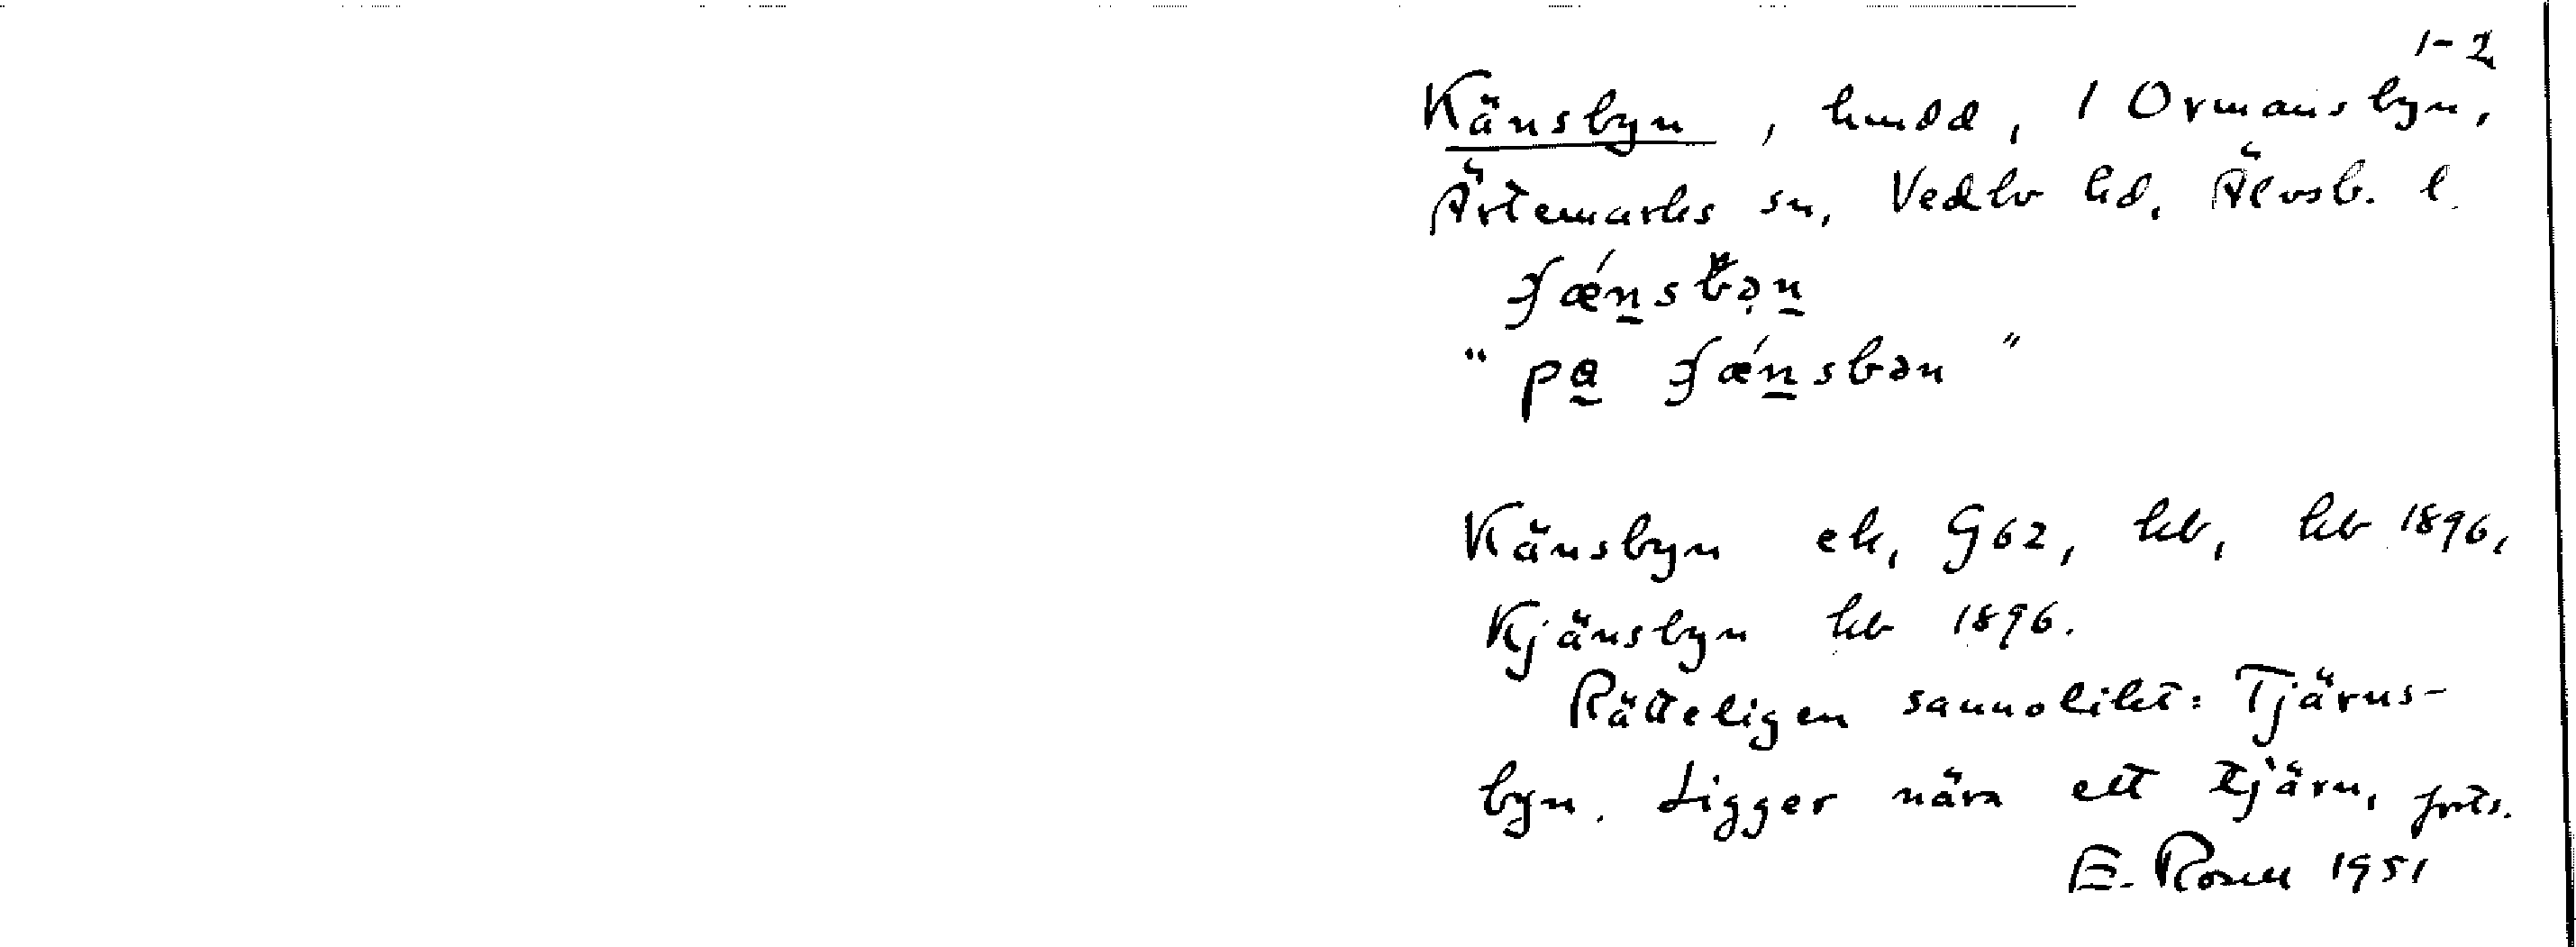 1-2
Känsbyn, hmdd, 1 Ormansbyn,
Ärtemarks sn, Vedbo hd, Älvsb. l.
"på
Känsbyn ek, G62, kb, hb 1896,
Kjänsbyn hb 1896.
Rätteligen sannolikt: Tjärns-
byn. Ligger nära ett tjärn, forts.
E. Rosell 1951